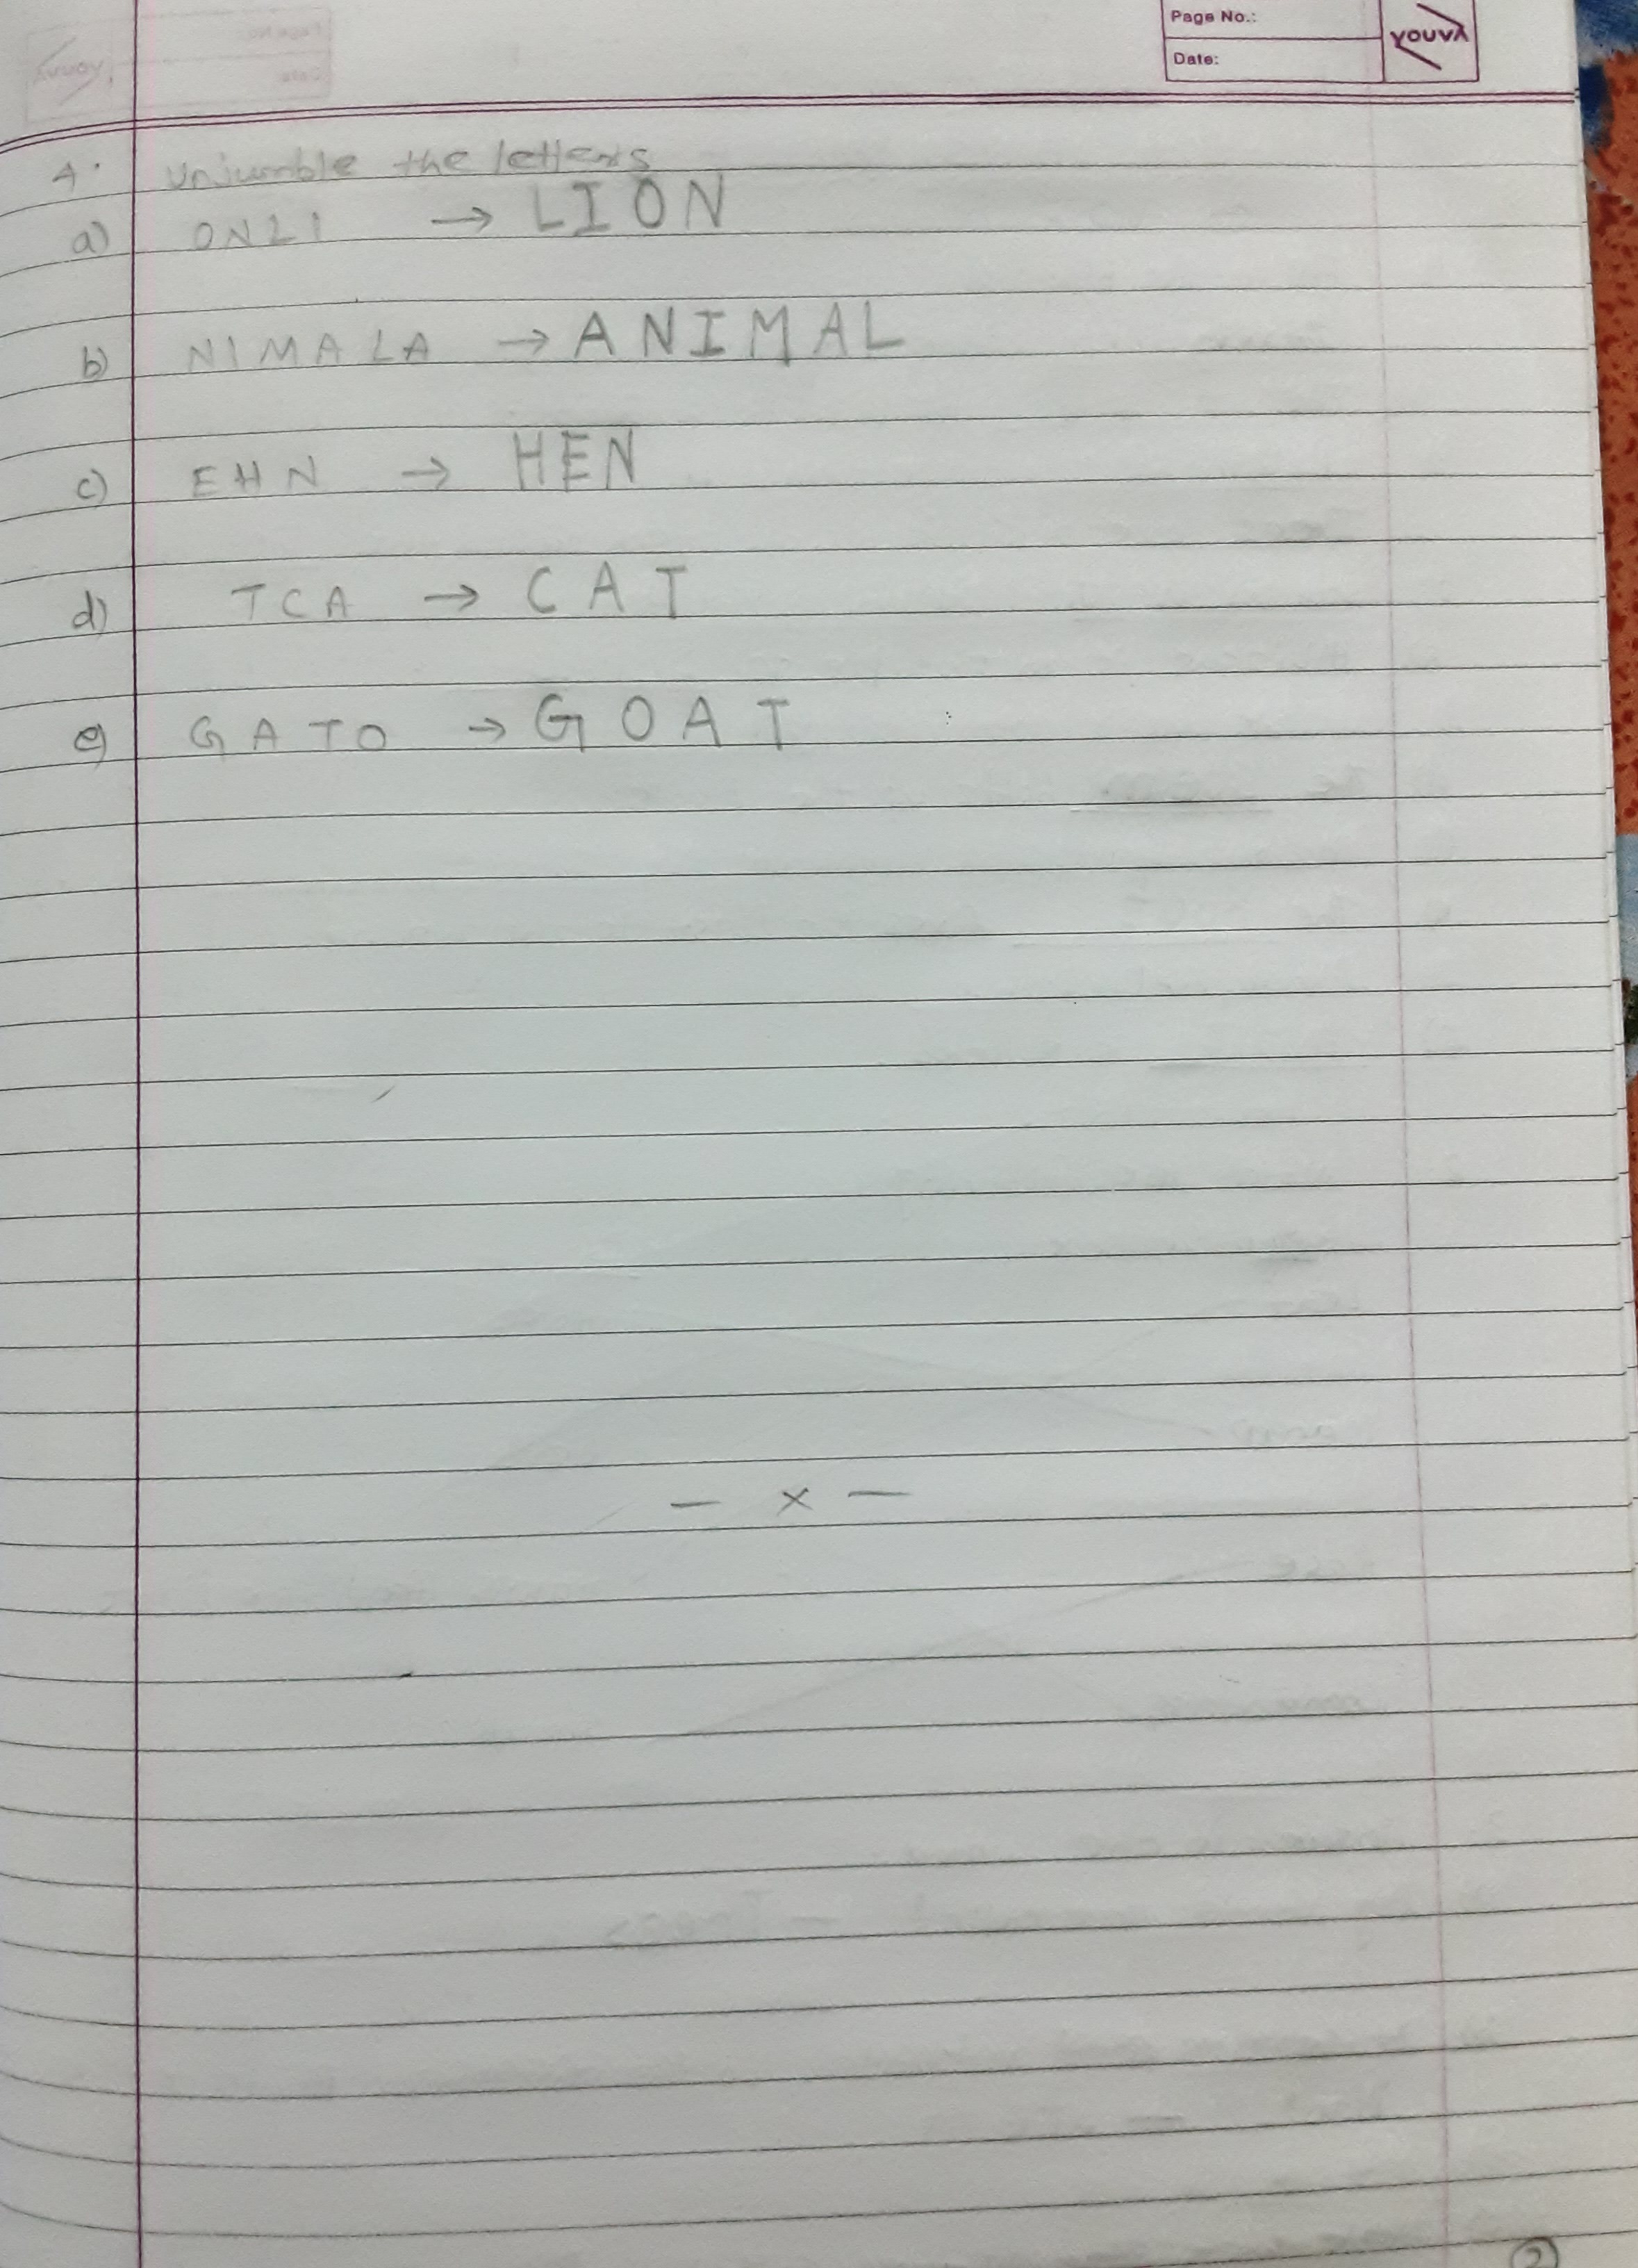 Page No.:
Date:
YOUVA
4. Unjumble the letters
a) ONLI → LION
b) NIMALA → ANIMAL
c) EHN → HEN
d) TCA → CAT
e) GATO → GOAT
— x —
2